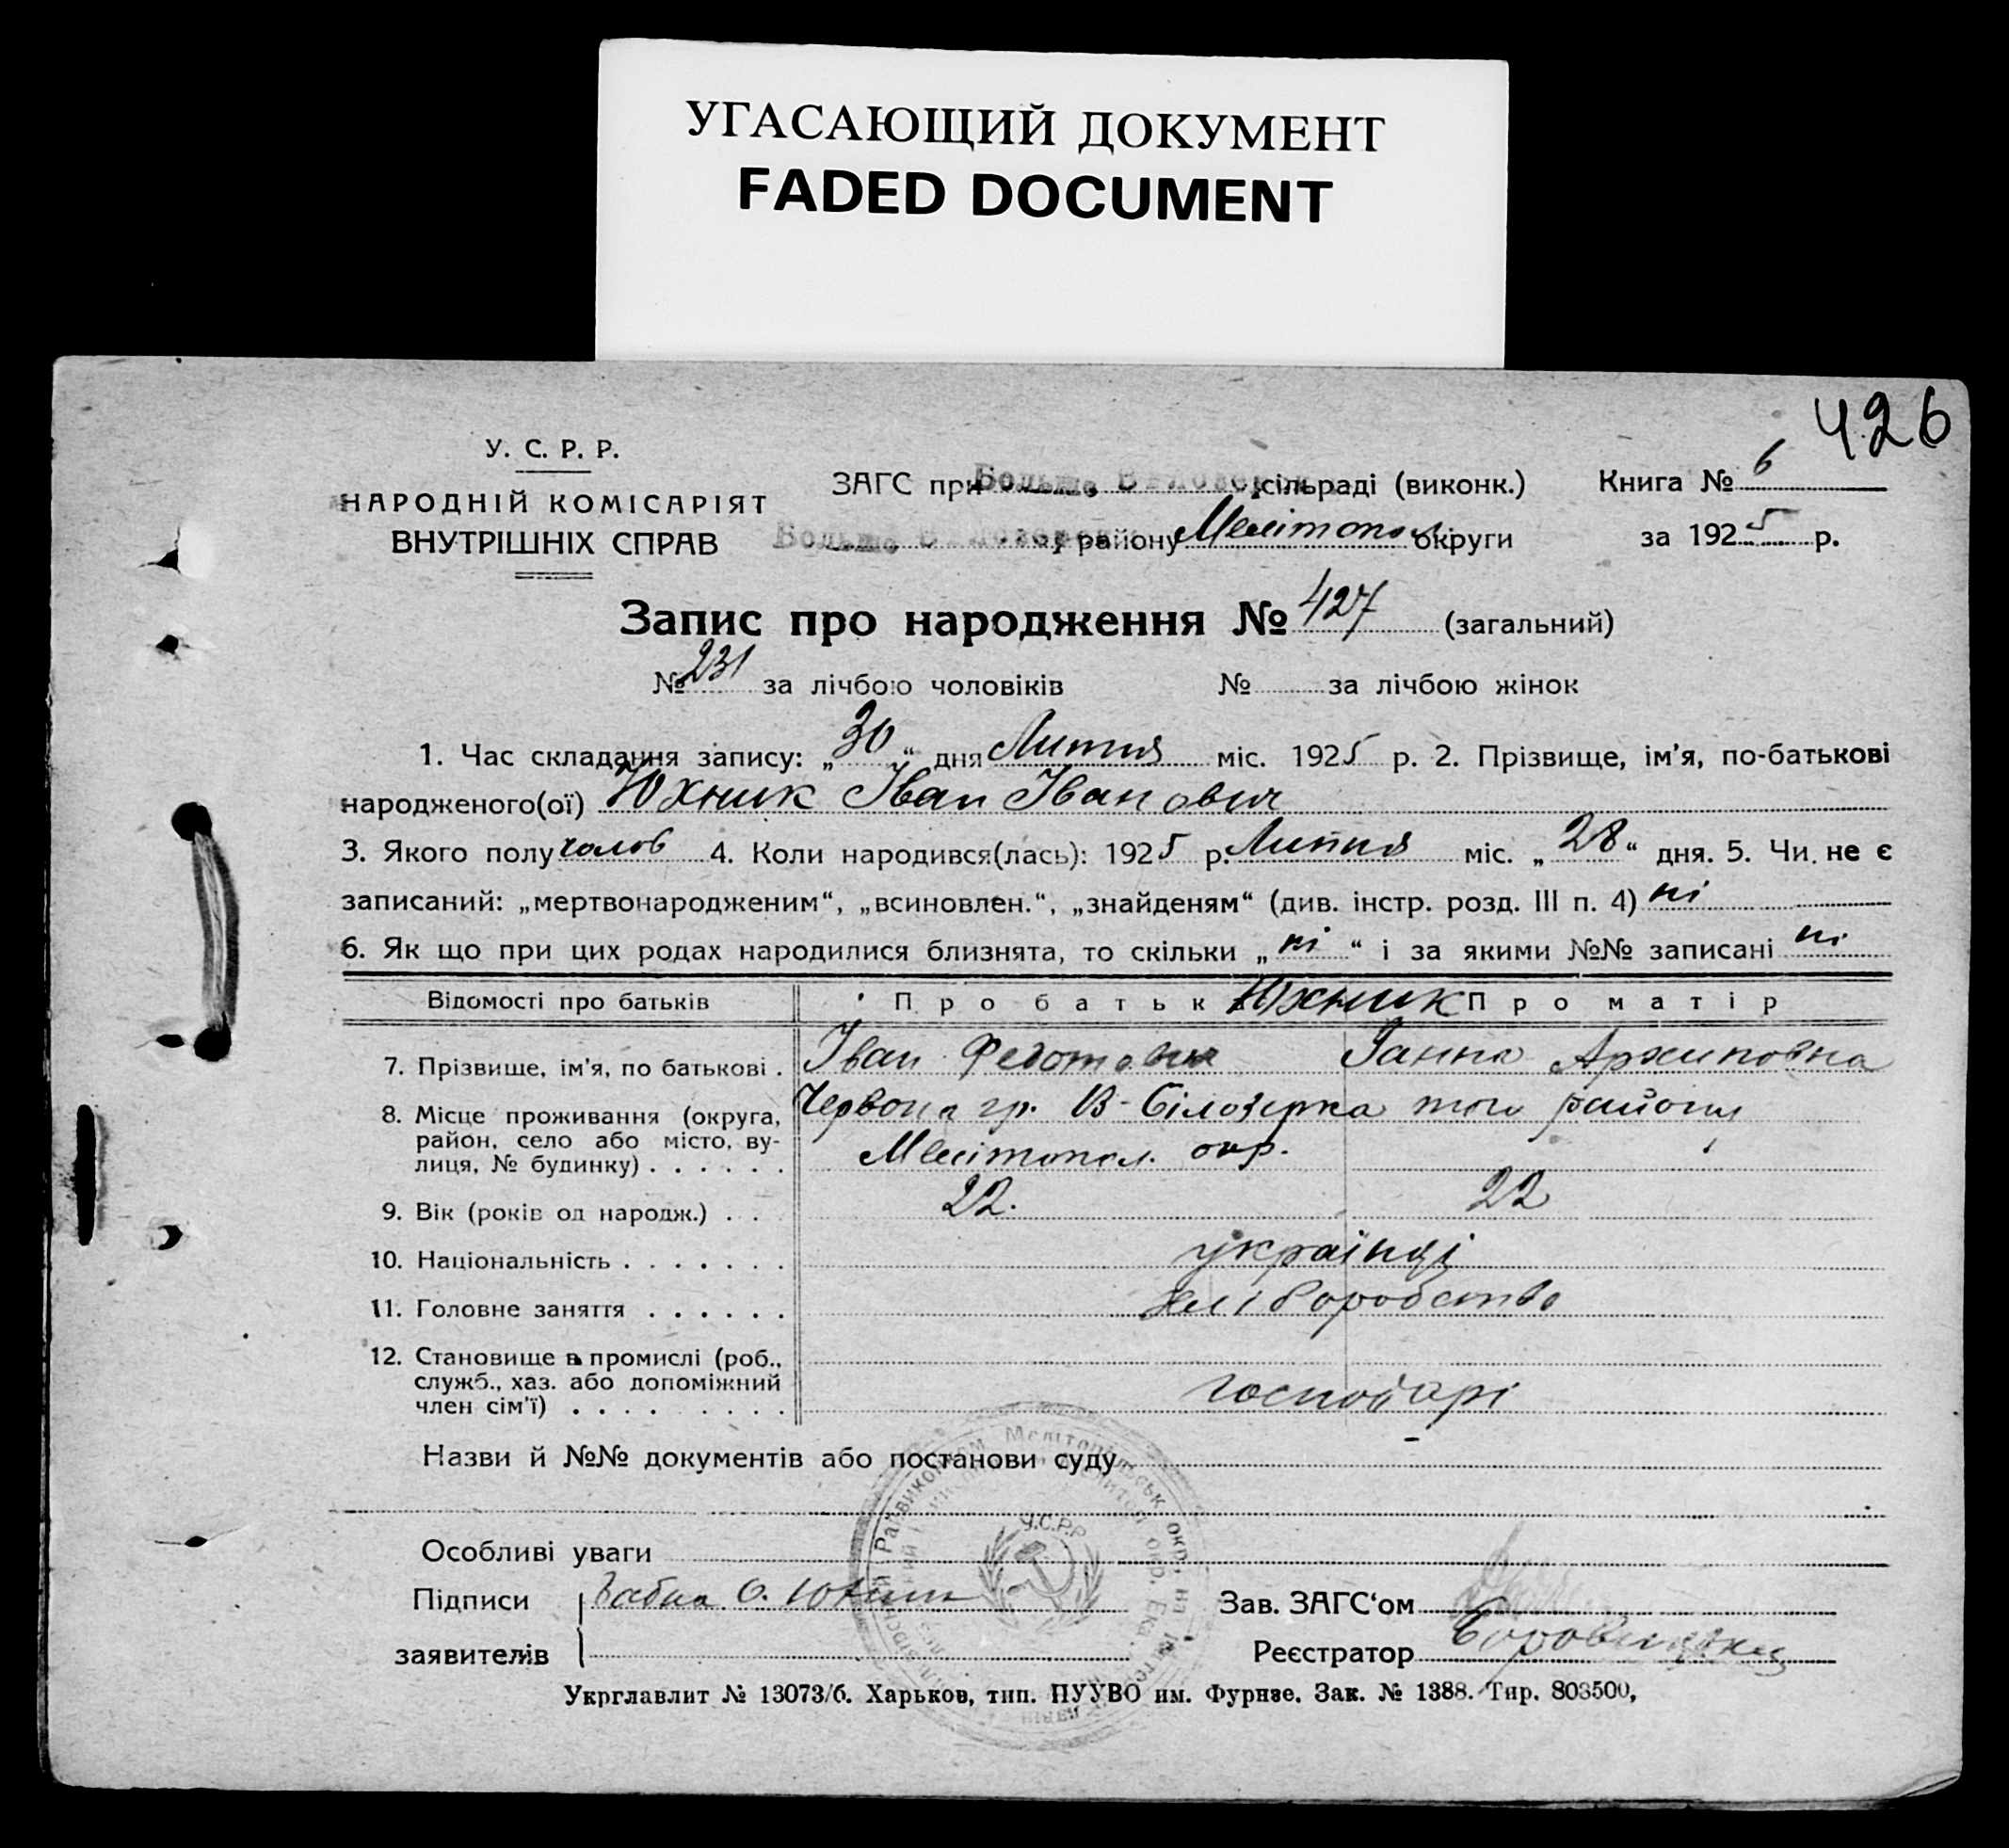 УГАСАЮЩИЙ ДОКУМЕНТ
FADED DOCUMENT
426
У. С. Р. Р.
НАРОДНІЙ КОМІСАРІЯТ
ВНУТРІШНІХ СПРАВ
ЗАГС при Больше Білозерск сільраді (виконк.)
Больше Білозерск у району Мелітопол. округи
Книга № 6
за 1925 р.
Запис про народження № 427 (загальний)
№ 231 за лічбою чоловіків № за лічбою жінок
1. Час складання запису: „30“ дня Липня міс. 1925 р. 2. Прізвище, ім'я, по-батькові
народженого(ої) Юхник Іван Іванович
3. Якого полу чолов 4. Коли народився(лась): 1925 р. Липня міс. „28“ дня. 5. Чи не є
записаний: „мертвонародженим“, „всиновлен.“, „знайденям“ (див. інстр. розд. III п. 4) ні
6. Як що при цих родах народилися близнята, то скільки „ні“ і за якими №№ записані ні
Відомості про батьків Про батьк Юхник Про матір
7. Прізвище, ім'я, по батькові . Іван Федотович Ганна Архиповна
8. Місце проживання (округа, Червона гр. В-Білозерка того району
район, село або місто, ву- Мелітопол. окр.
лиця, № будинку) . . . . . .
9. Вік (років од народж.) . . 22. 22
10. Національність . . . . . . . українці
11. Головне заняття . . . . . . хліборобство
12. Становище в промислі (роб.,
служб., хаз. або допоміжний
член сім'ї) . . . . . . . . . господарі
Назви й №№ документів або постанови суду
Особливі уваги
Підписи Бабка О. Юхник
заявителів
Зав. ЗАГС'ом
Реєстратор
У.С.Р.Р.
Укрглавлит № 13073/б. Харьков, тип. ПУУВО им. Фурнзе. Зак. № 1388. Тир. 803500,